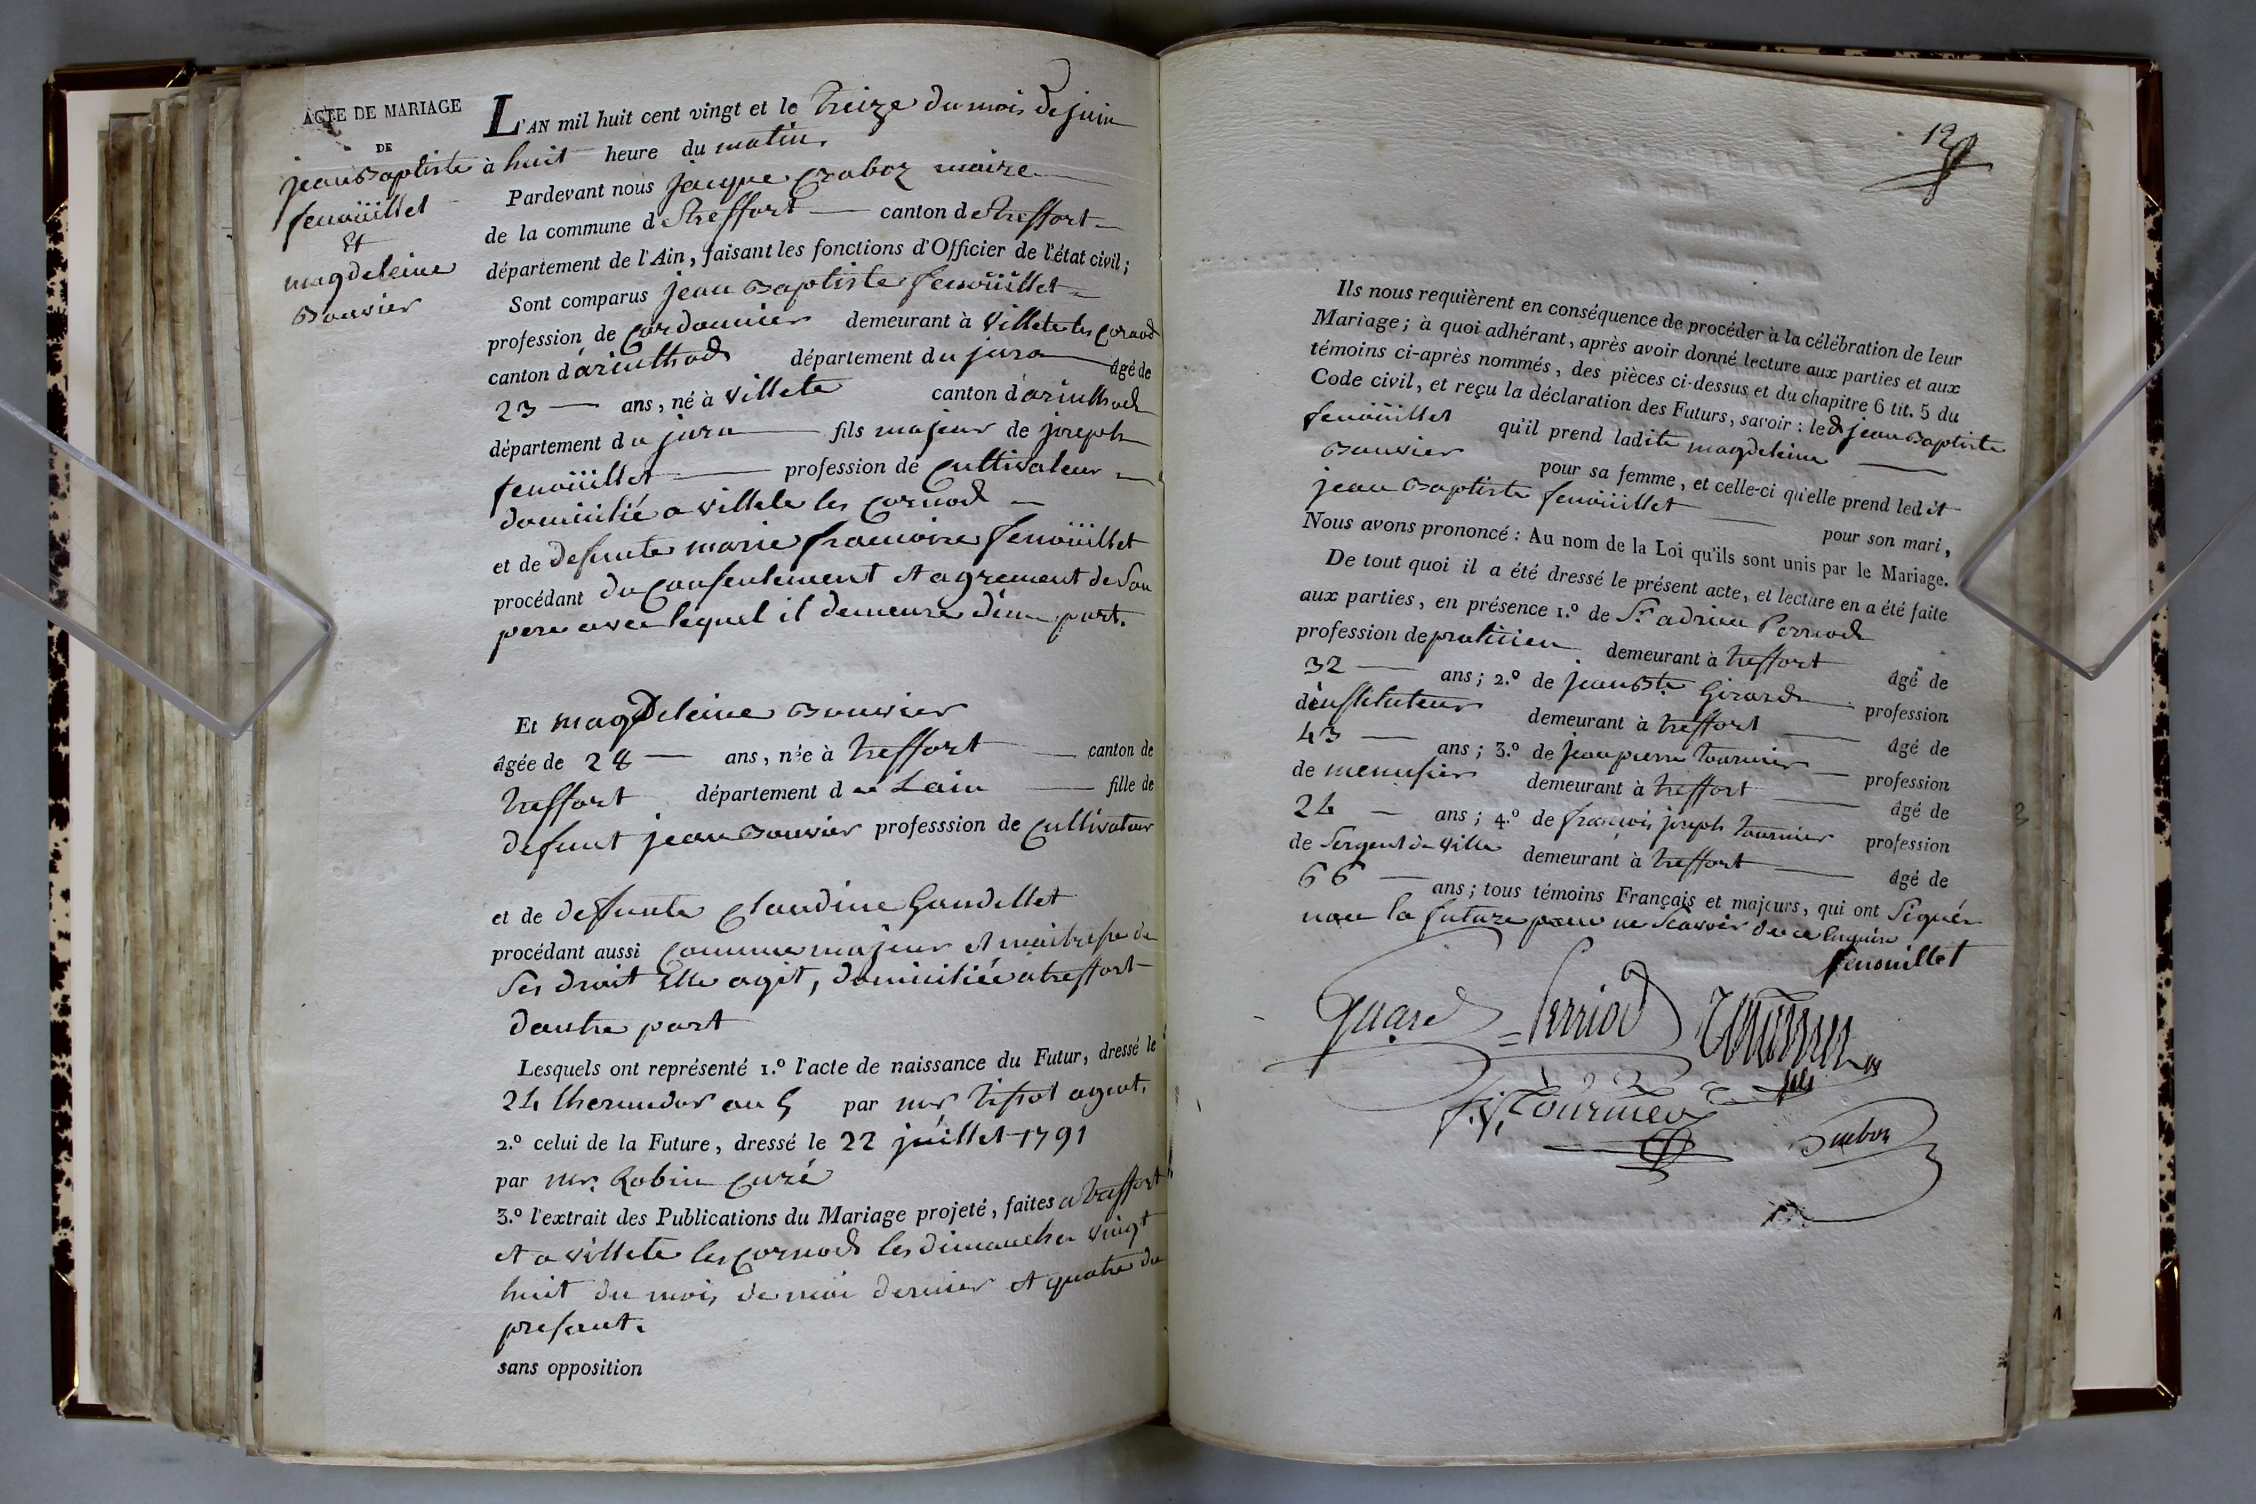 ACTE DE MARIAGE
DE
jean Baptiste
fenoüillet
Et
magdeleine
Bouvier
L'AN mil huit cent vingt et le treize du mois de juin
à huit heure du matin.
Pardevant nous jacque maire
de la commune de treffort canton de treffort
département de l'Ain, faisant les fonctions d'Officier de l'état civil;
Sont comparus jean Baptiste fenoüillet
profession de Cordonnier demeurant à Villete les Cornod
canton d'arinthod département du jura âgé de
23 ans, né à Villete canton d'arinthod
département du jura fils majeur de joseph
fenoüillet profession de Cultivateur
domicilié a Villete les Cornod
et de defunte marie francoise fenoüillet
procédant du Consentement et agrement de Son
pere avec lequel il demeure d'une part.
Et magdeleine Bouvier
âgée de 28 ans, née à treffort canton de
treffort département de Lain fille de
defunt jean Bouvier professsion de Cultivateur
et de deffunte Claudine Gaudillet
procédant aussi Comme majeur et maitresse de
Ses droit Elle agit, domiciliée a treffort
dautre part
Lesquels ont représenté 1.º l'acte de naissance du Futur, dressé le
24 thermidor an 5 par mr tissot agent.
2.º celui de la Future, dressé le 22 juillet 1791
par mr. Robin Curé
3.º l'extrait des Publications du Mariage projeté, faites a treffort
et a Villete les Cornod les dimanches vingt
huit du mois de mai dernier et quatre du
present.
sans opposition
12
Ils nous requièrent en conséquence de procéder à la célébration de leur
Mariage; à quoi adhérant, après avoir donné lecture aux parties et aux
témoins ci-après nommés, des pièces ci-dessus et du chapitre 6 tit. 5 du
Code civil, et reçu la déclaration des Futurs, savoir : led jean Baptiste
fenoüillet qu'il prend ladite magdeleine
Bouvier pour sa femme, et celle-ci qu'elle prend ledit
jean Baptiste fenoüillet pour son mari,
Nous avons prononcé : Au nom de la Loi qu'ils sont unis par le Mariage.
De tout quoi il a été dressé le présent acte, et lecture en a été faite
aux parties, en présence 1.º de Sr. adrien Perriod
profession de praticien demeurant à treffort âgé de
32 ans; 2.º de jean Bte Girard profession
d'instituteur demeurant à treffort âgé de
43 ans; 3.º de jean pierre tournier profession
de menusier demeurant à treffort âgé de
24 ans; 4.º de francois joseph tournier profession
de Sergent de Ville demeurant à treffort âgé de
66 ans; tous témoins Français et majeurs, qui ont Signés
non la future pour ne Scavoir de ce Enquise
fenouillet
Perriod
Tournier
fils
f. j. Tournier